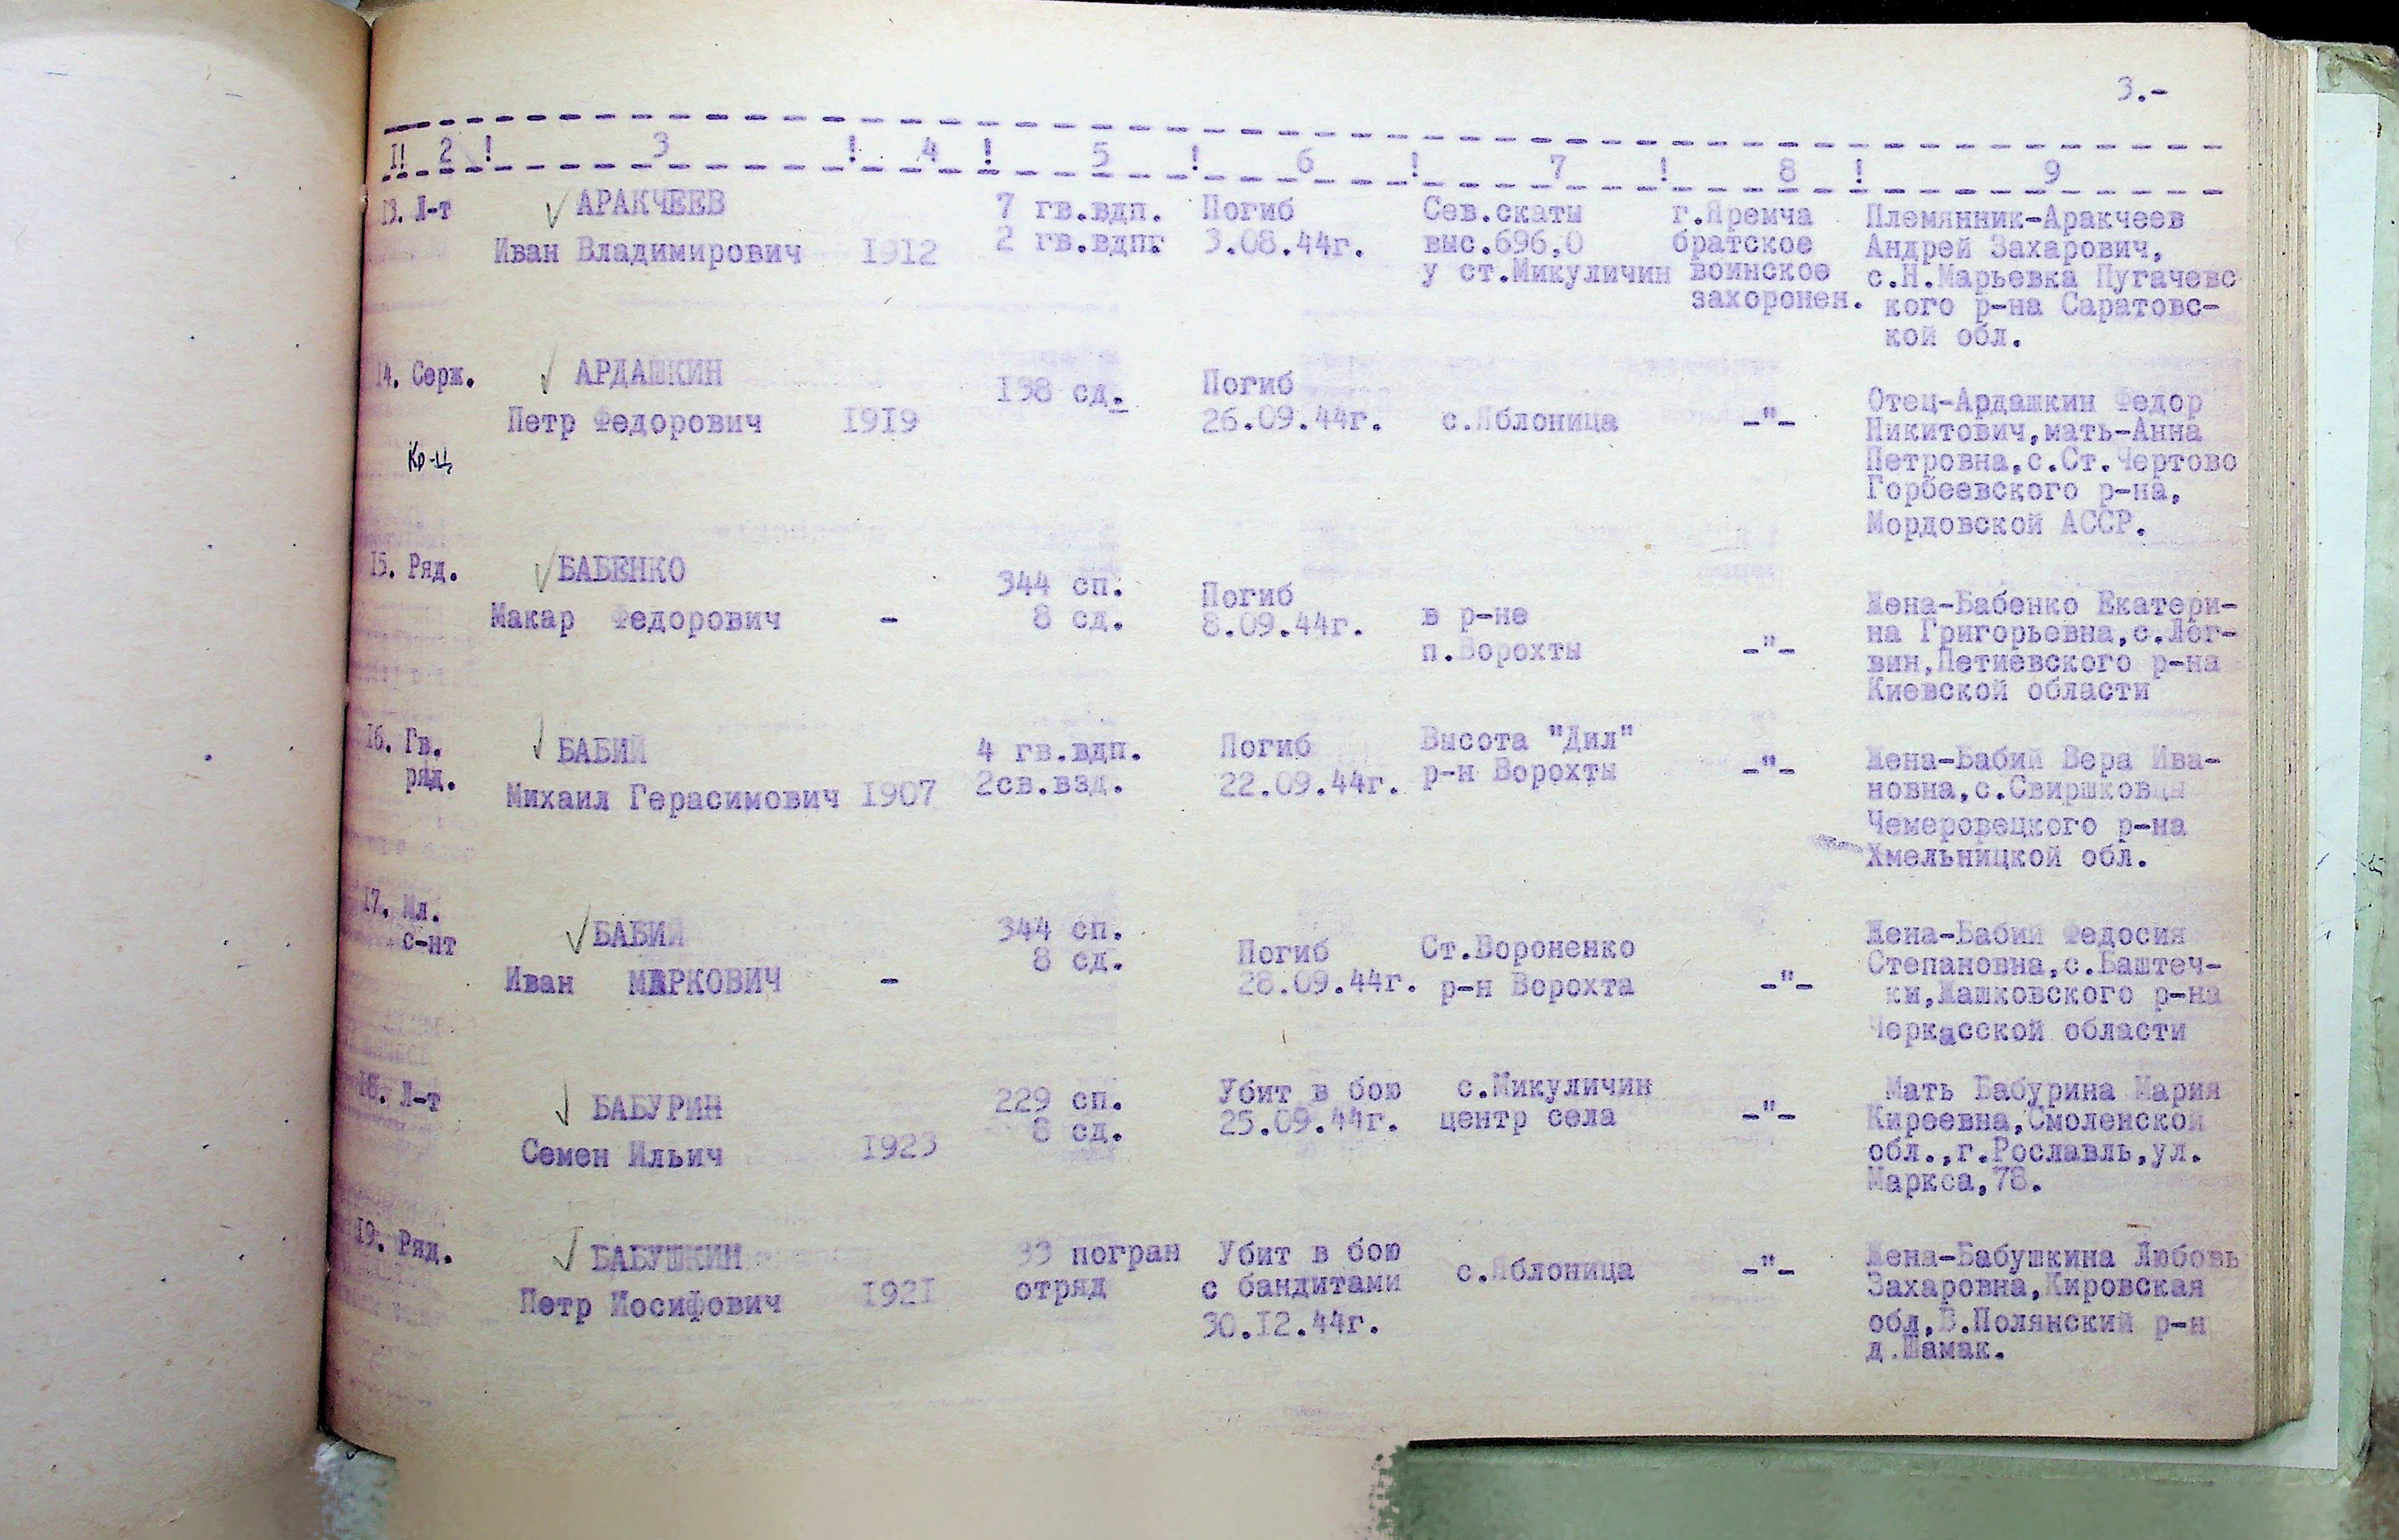 3.-
I! 2 ! 3 ! 4 ! 5 ! 6 ! 7 ! 8 ! 9
13. Л-т АРАКЧЕЕВ 7 гв.вдп. Погиб Сев.скаты г.Яремча Племянник-Аракчеев
Иван Владимирович I9I2 2 гв.вдпг 3.08.44г. выс.696,0 братское Андрей Захарович,
у ст.Микуличин воинское с.Н.Марьевка Пугачевс
захоронен. кого р-на Саратовс-
кой обл.
I4. Серж. АРДАШКИН I38 сд. Погиб
Отец-Ардашкин Федор
Петр Федорович I9I9 26.09.44г. с.Яблоница -"- Никитович,мать-Анна
Кр-ц Петровна,с.Ст.Чертово
Горбеевского р-на,
Мордовской АССР.
I5. Ряд. БАБЕНКО 344 сп. Погиб Жена-Бабенко Екатери-
Макар Федорович - 8 сд. 8.09.44г. в р-не на Григорьевна,с.Лог-
п.Ворохты -"- вин,Летиевского р-на
Киевской области
I6. Гв. БАБИЙ 4 гв.вдп. Погиб Высота "Дил" Жена-Бабий Вера Ива-
ряд. Михаил Герасимович I907 2св.взд. 22.09.44г. р-н Ворохты -"- новна,с.Свиршковцы
Чемеровецкого р-на
Хмельницкой обл.
I7. Мл. БАБИЙ 344 сп. Погиб Ст.Вороненко Жена-Бабий Федосия
с-нт 8 сд. Степановна,с.Баштеч-
Иван МАРКОВИЧ - 28.09.44г. р-н Ворохта -"- ки,Жашковского р-на
Черкасской области
I8. Л-т БАБУРИН 229 сп. Убит в бою с.Микуличин Мать Бабурина Мария
8 сд. 25.09.44г. центр села -"- Киреевна,Смоленской
Семен Ильич I923 обл.,г.Рославль,ул.
Маркса,78.
I9. Ряд. БАБУШКИН 33 погран Убит в бою с.Яблоница -"- Жена-Бабушкина Любовь
Петр Иосифович I92I отряд с бандитами Захаровна,Кировская
30.I2.44г. обл,В.Полянский р-н
д.Шамак.